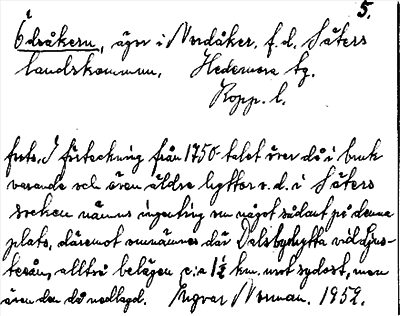 5.
Ödsåkern, äger i Nordåker, f.d. Säters
landskommun. Hedemora tg.
Kopp. l.
forts. I förteckning från 1750-talet över då i bruk
varande och även äldre hyttor o.d. i Säters
socken nämns ingenting om något sådant på denna
plats, däremot omnämnes där Dalsbyhytta vid Ljus-
terån, alltså belägen c:a 1½ km. mot sydost, men
även den då nedlagd. Yngvar Norman. 1952.